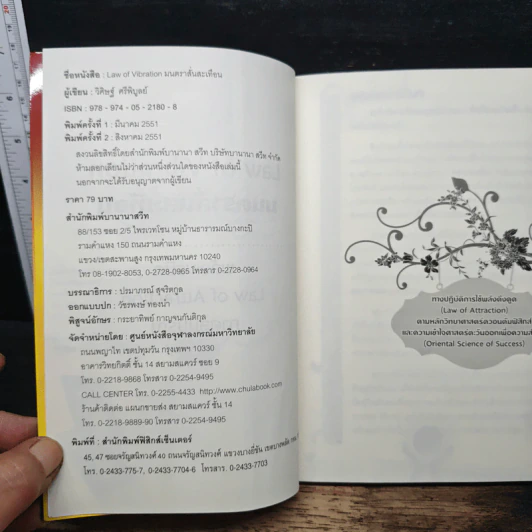 ชื่อหนังสือ : Law of Vibration มนตราสั่นสะเทือน
ผู้เขียน : วิศิษฐ์ ศรีพิบูลย์
ISBN : 978 - 974 - 05 - 2180 - 8
พิมพ์ครั้งที่ 1 : มีนาคม 2551
พิมพ์ครั้งที่ 2 : สิงหาคม 2551
สงวนลิขสิทธิ์โดยสำนักพิมพ์บานานา สวีท บริษัทบานานา สวีท จำกัด
ห้ามลอกเลียนไม่ว่าส่วนหนึ่งส่วนใดของหนังสือเล่มนี้
นอกจากจะได้รับอนุญาตจากผู้เขียน
ราคา 79 บาท
สำนักพิมพ์บานานาสวีท
88/153 ซอย 2/5 ไพรเวทโซน หมู่บ้านธารารมณ์บางกะปิ
รามคำแหง 150 ถนนรามคำแหง
แขวง/เขตสะพานสูง กรุงเทพมหานคร 10240
โทร 08-1902-8053, 0-2728-0965 โทรสาร 0-2728-0964
บรรณาธิการ : ปรมาภรณ์ สุจริตกูล
ออกแบบปก : วัชรพงษ์ ทองนำ
พิสูจน์อักษร : กระยาทิพย์ กาญจนกันติกุล
จัดจำหน่ายโดย : ศูนย์หนังสือจุฬาลงกรณ์มหาวิทยาลัย
ถนนพญาไท เขตปทุมวัน กรุงเทพฯ 10330
อาคารวิทยกิตติ์ ชั้น 14 สยามสแควร์ ซอย 9
โทร. 0-2218-9868 โทรสาร 0-2254-9495
CALL CENTER โทร. 0-2255-4433 http://www.chulabook.com
ร้านค้าติดต่อ แผนกขายส่ง สยามสแควร์ ชั้น 14
โทร. 0-2218-9889-90 โทรสาร 0-2254-9495
พิมพ์ที่ : สำนักพิมพ์ฟิสิกส์เซ็นเตอร์
45, 47 ซอยจรัญสนิทวงศ์ 40 ถนนจรัญสนิทวงศ์ แขวงบางยี่ขัน เขตบางพลัด
โทร. 0-2433-775-7, 0-2433-7704-6 โทรสาร. 0-2433-7703
ทางปฏิบัติการใช้พลังดึงดูด
(Law of Attraction)
ตามหลักวิทยาศาสตร์ควอนตัมฟิสิกส์
และความเข้าใจศาสตร์ตะวันออกเพื่อความสำ
(Oriental Science of Success)